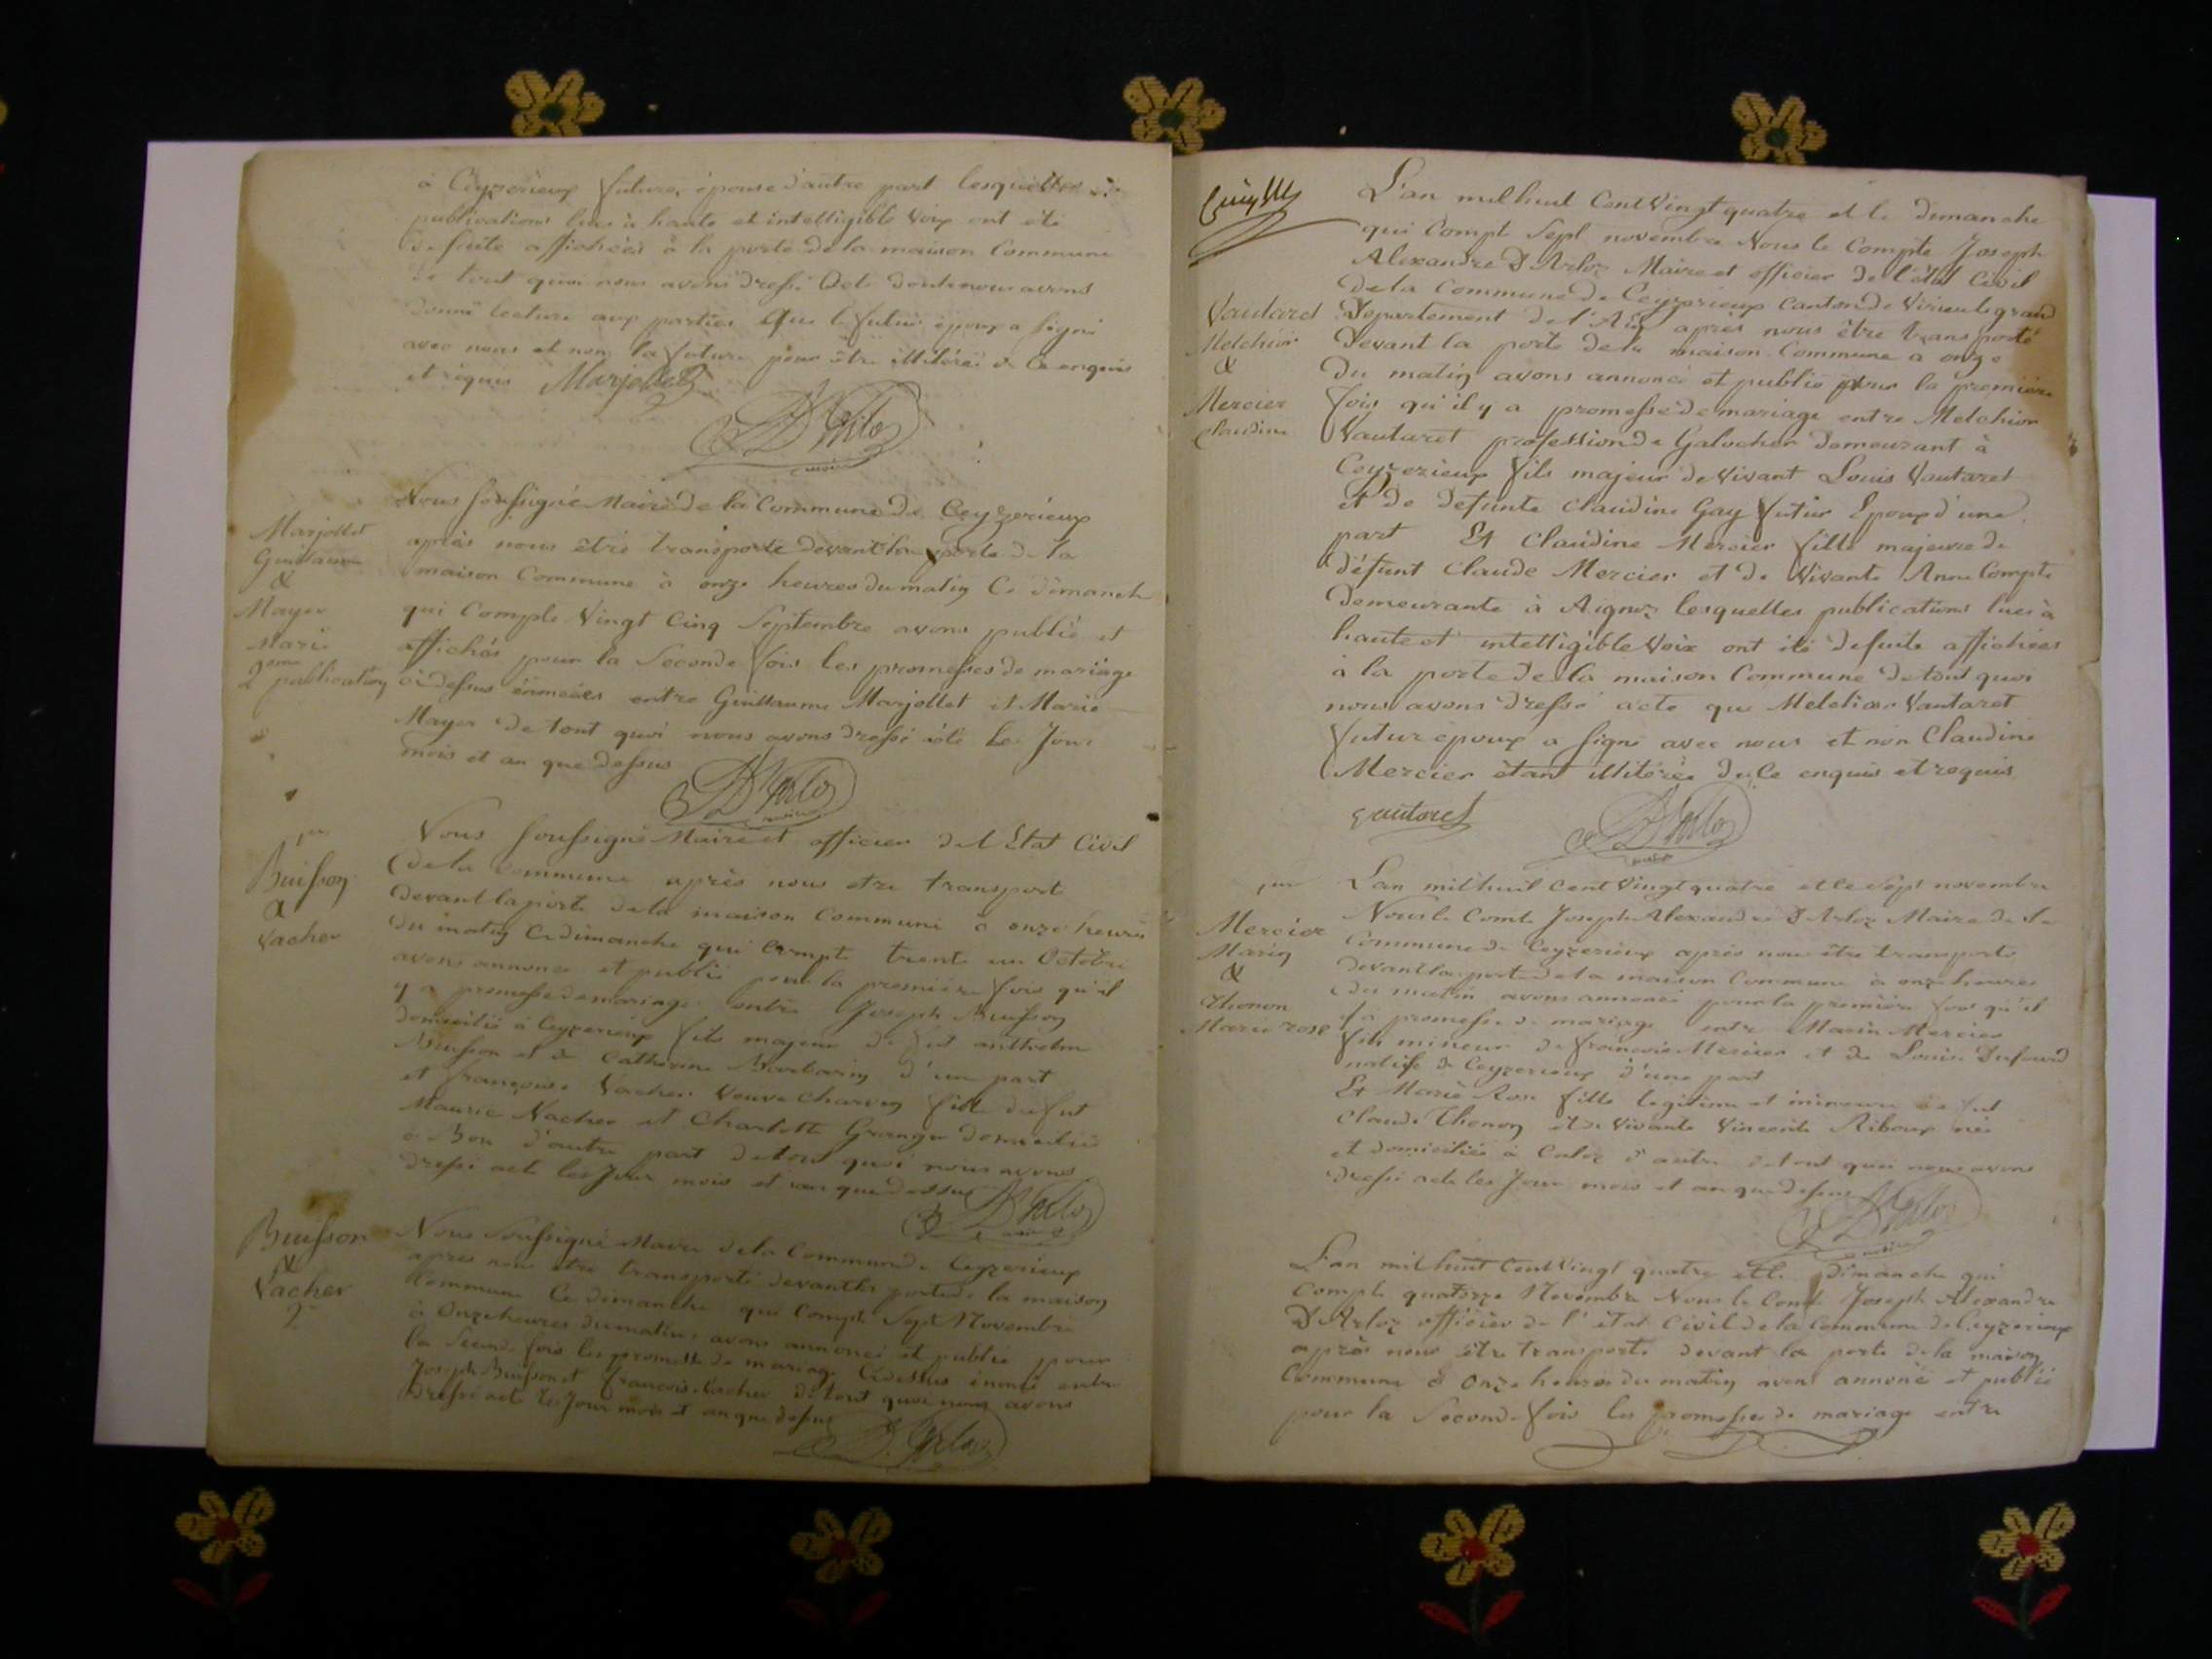 à Ceyzerieux future épouse d'autre part lesquelles
publications lues à haute et intelligible voix ont été
de suite affichées à la porte de la maison Commune
de tout quoi nous avons dressé Acte dont nous avons
donné lecture aux parties que le futur époux a signé
avec nous et non la future pour être illitérée de ce enquis
et requis Marjollet
D'Arloz
Marjollet
Guillaume
&
Mayer
Marie
2eme publication
Nous soussigné Maire de la Commune de Ceyzerieux
après nous être transporté devant la porte de la
maison Commune à onze heures du matin Ce dimanche
qui Compte Vingt Cinq Septembre avons publié et
affichés pour la Seconde fois les promesses de mariage
ci dessus entre Guillaume Marjollet et Marie
Mayer de tout quoi nous avons dressé acte les Jour
mois et an que dessus
D'Arloz
Buisson
&
Vacher
Nous soussigné Maire et officier de l Etat Civil
de la Commune après nous etre transport
devant la porte de la maison Commune à onze heures
du matin Ce dimanche qui Compte trente un Octobre
avons annoncé et publié pour la première fois qu'il
y a promesse de mariage entre Joseph Buisson
domicilié à Ceyzerieux fils majeur de fut anthelme
Buisson et de Catherine Barbarin d'une part
et françoise Vacher Veuve Charvin fille de fut
Maurie Vacher et Charlotte Granger domiciliée
à Bon d'autre part de tout quoi nous avons
dressé acte les Jour mois et an que dessus
D'Arloz
Buisson
&
Vacher
2e
Nous Soussigné Maire de la Commune de Ceyzerieux
après nous etre transporté devant les porte de la maison
Commune Ce dimanche qui Compte Sept Novembre
à Onze heures du matin avons annoncé et publié pour
la Seconde fois les promesse de mariage Cidessus énoncé entre
Joseph Buisson et françoise Vacher de tout quoi nous avons
dressé acte les Jour mois et an que dessus
D'Arloz
Vautaret
Melchior
&
Mercier
Claudine
L'an mil huit Cent Vingt quatre et le dimanche
qui Compt Sept novembre Nous le Compte Joseph
Alexandre D'Arloz Maire et officier de l'état Civil
de la Commune de Ceyzerieux Canton de Virieu le grand
Departement de l'Ain après nous être transporté
devant la porte de la maison Commune a onze
du matin avons annoncé et publié pour la première
fois qu'il y a promesse de mariage entre Melchior
Vautaret profession de Galocher demeurant à
Ceyzerieux fils majeur de Vivant Louis Vautaret
et de defunte Claudine Gay futur Epoux d'une
part Et Claudine Mercier fille majeure de
défunt Claude Mercier et de Vivante Anne Compte
demeurante à Aignoz lesquelles publications lues à
haute et intelligible voix ont été desuite affichées
à la porte de la maison Commune de tout quoi
nous avons dressé acte que Melchior Vautaret
futur epoux a signé avec nous et non Claudine
Mercier étant illitérée de Ce enquis et requis
Vautaret
D'Arloz
Mercier
Marin
&
Thonon
Marie rose
L'an mil huit cent Vingt quatre et le Sept novembre
Nous le Comte Joseph Alexandre D'Arloz Maire de la
Commune de Ceyzerieux après nous être transporté
devant la porte de la maison Commune à onze heures
du matin avons annoncé pour la première fois qu'il
y a promesse de mariage entre Marin Mercier
fils mineur de françois Mercier et de Louise Dufourd
natif de Ceyzerieux d'une part
Et Marie Rose fille legitime et mineure de fut
Claude Thonon et de Vivante Vincente Riboux née
et domiciliée à Culoz d'autre de tout quoi nous avons
dressé acte les Jour mois et an que dessus
D'Arloz
L'an mil huit Cent Vingt quatre et le dimanche qui
Compte quatorze Novembre Nous le Comte Joseph Alexandre
D'Arloz officier de l'état Civil de la Commune de Ceyzerieux
après nous être transporté devant la porte de la maison
Commune à Onze heures du matin avons annoncé et publié
pour la Seconde fois les promesses de mariage entre